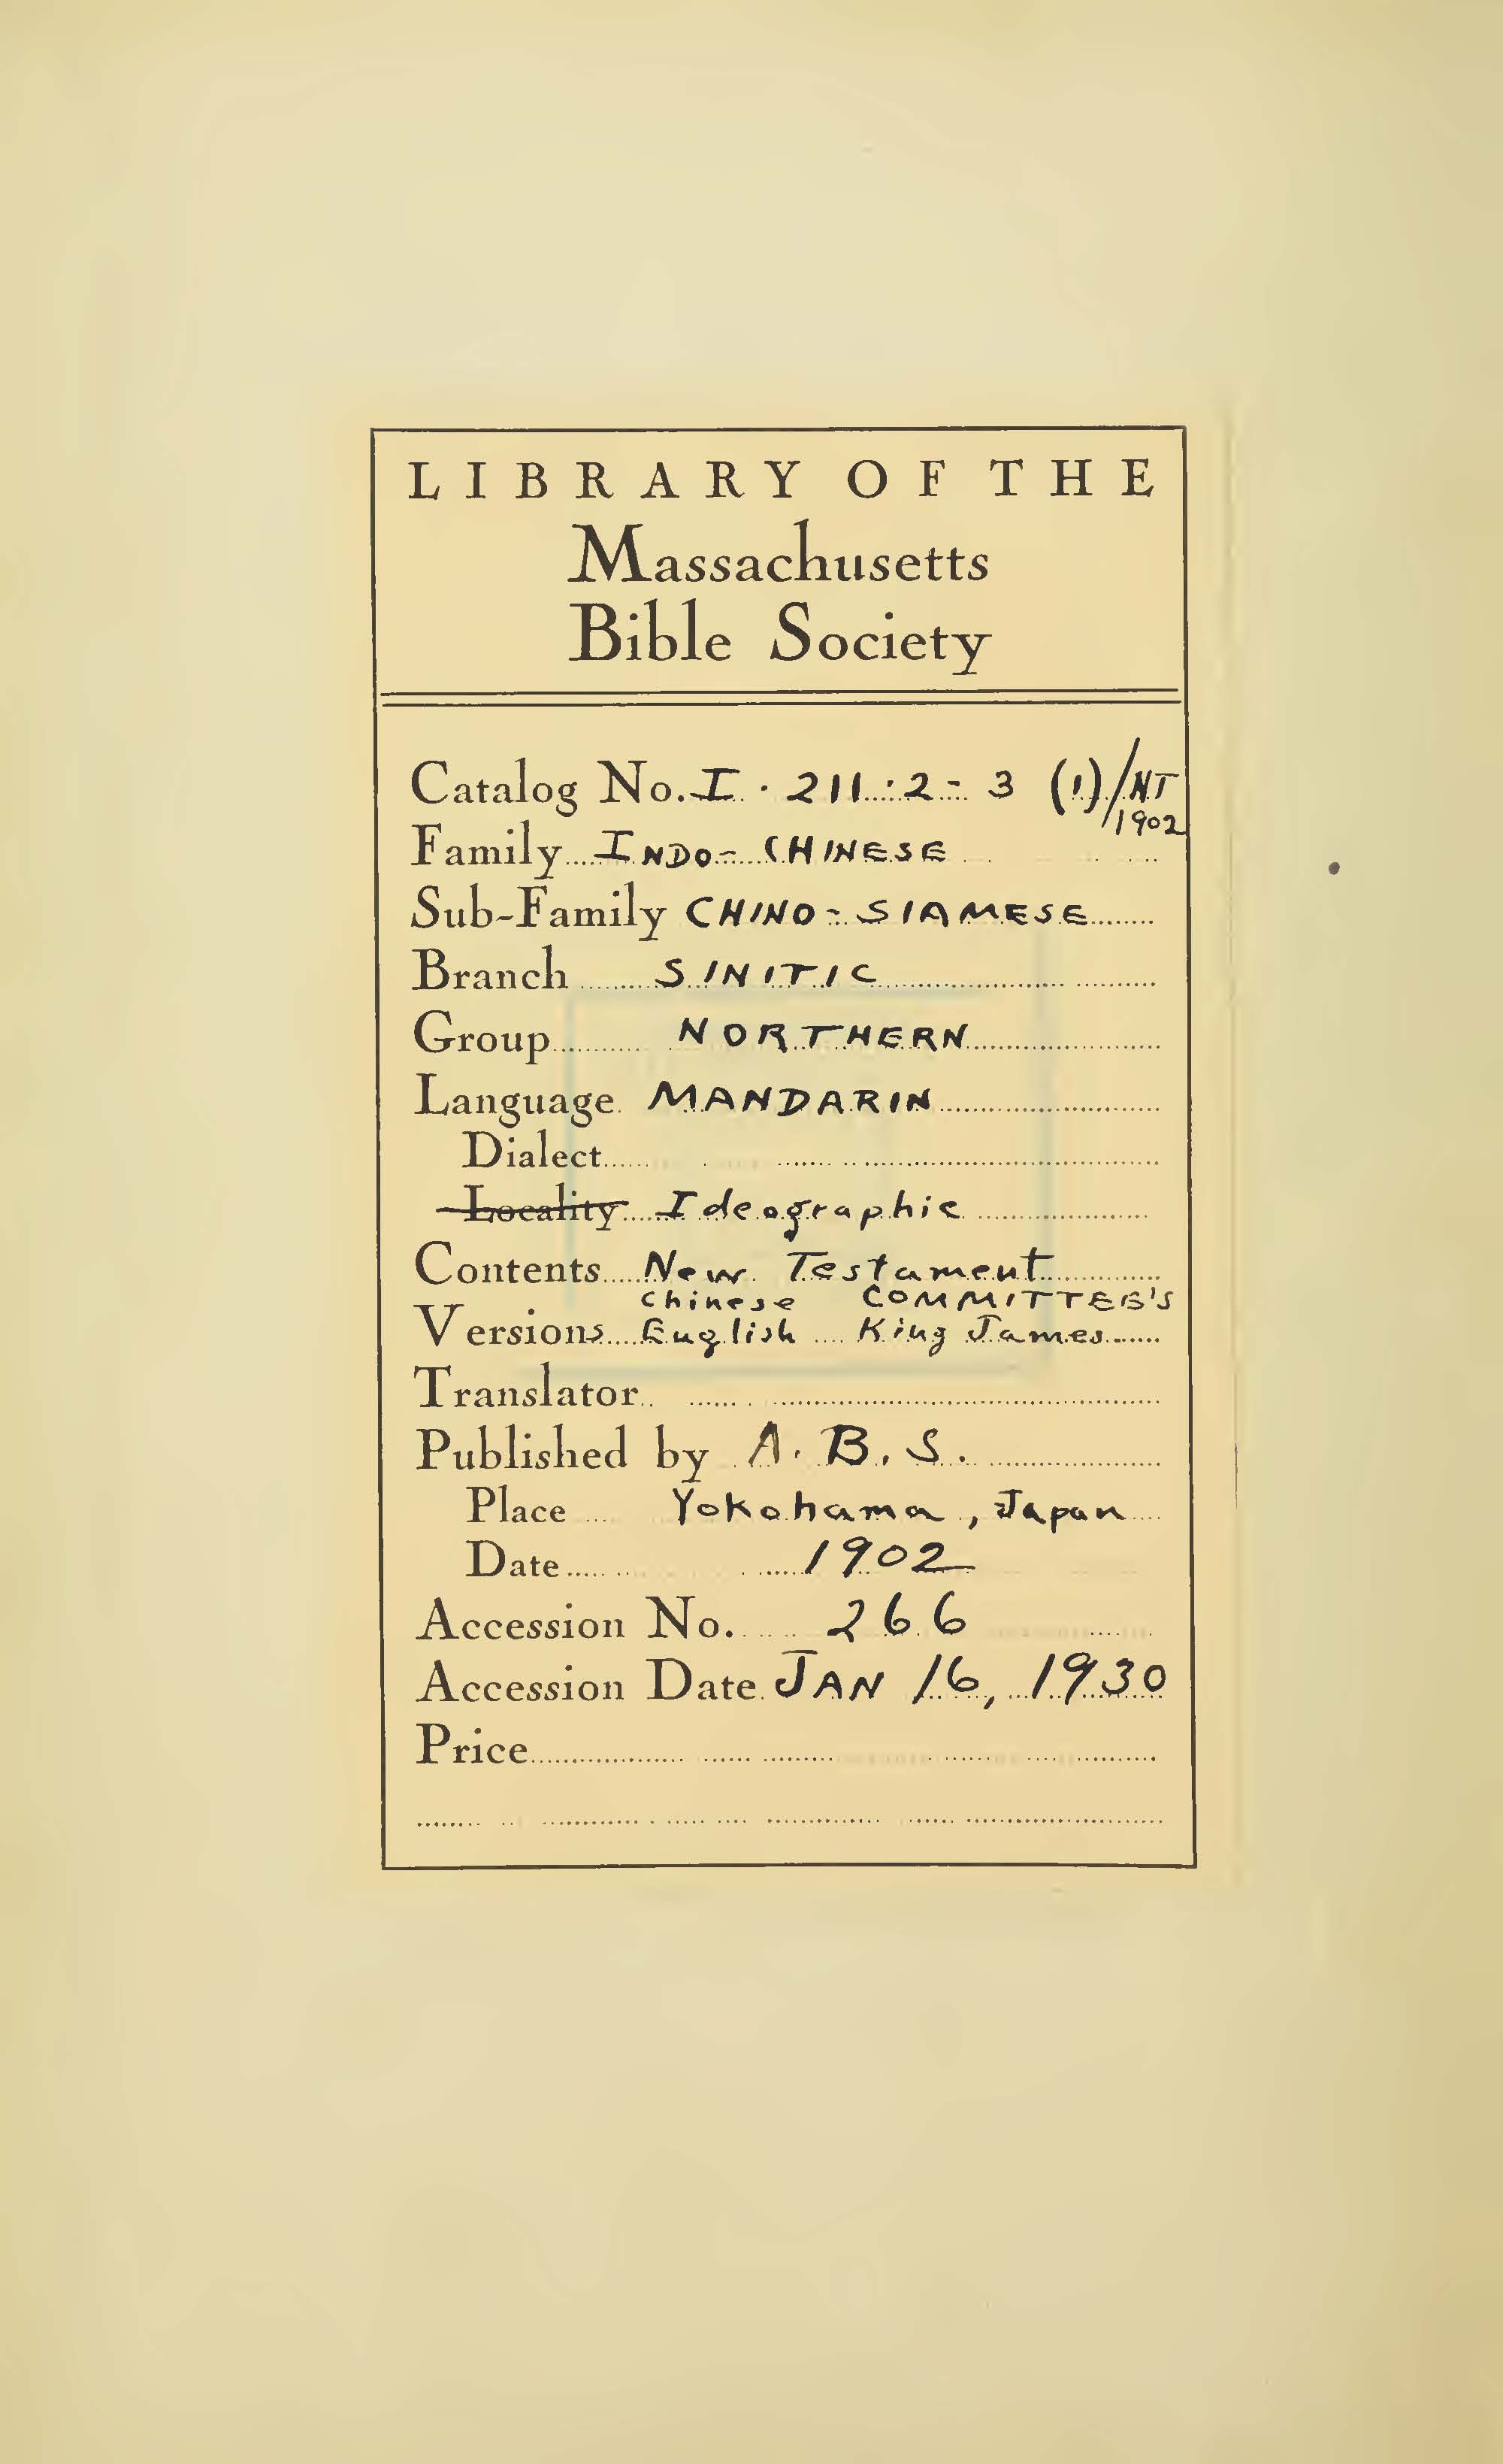 LIBRARY OF THE
Massachusetts
Bible Society
Catalog No. I · 211 : 2 - 3 (1)/NT
1902
Family INDO-CHINESE
Sub-Family CHINO-SIAMESE
Branch SINITIC
Group NORTHERN
Language MANDARIN
Dialect
Locality Ideographic
Contents New Testament
Chinese COMMITTEE'S
Versions English King James
Translator
Published by A. B. S.
Place Yokohama, Japan
Date 1902
Accession No. 266
Accession Date JAN 16, 1930
Price